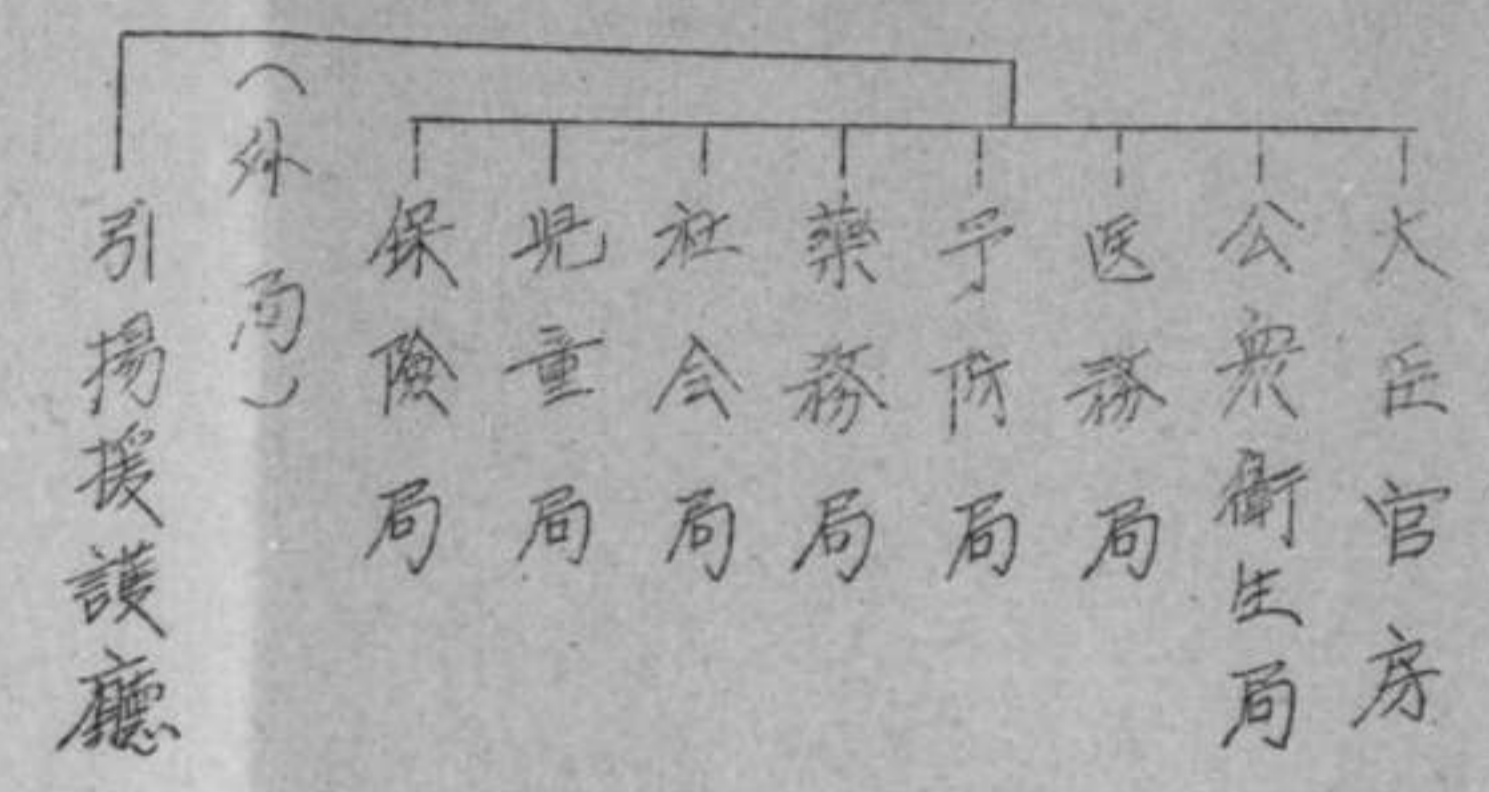 大臣官房
公衆衛生局
医務局
予防局
薬務局
社会局
児童局
保険局
（外局）
引揚援護廳